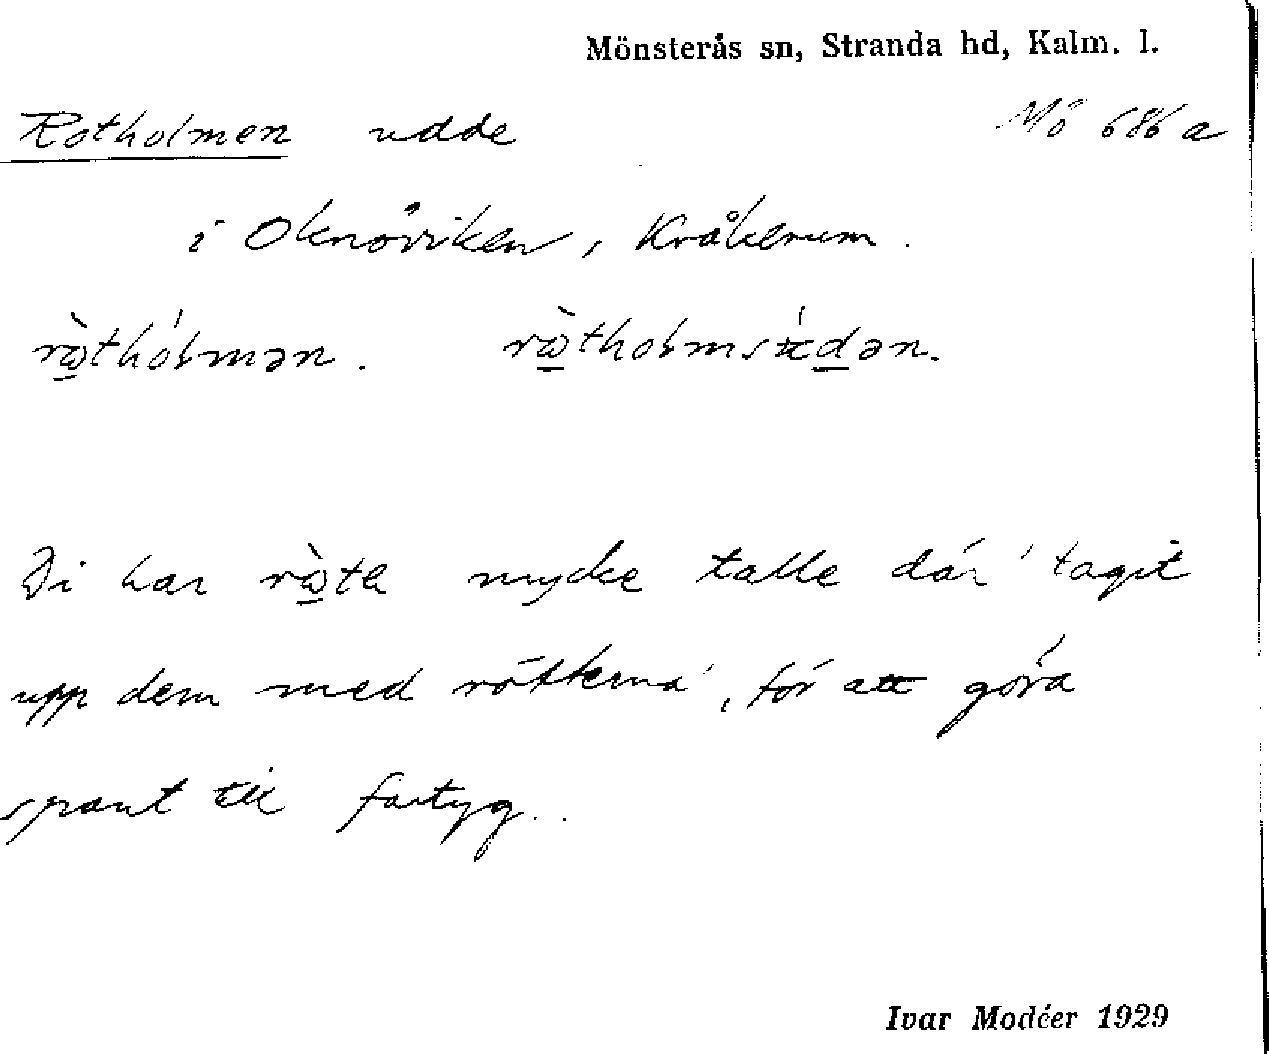 Mönsterås sn, Stranda hd, Kalm. l.
Rotholmen udde Mö 686 a
i Oknöviken, Kråkerum.
Di har rata mycke talle där 'tagit
upp dem med rötterna', för att göra
spant till fartyg.
Ivar Modéer 1929